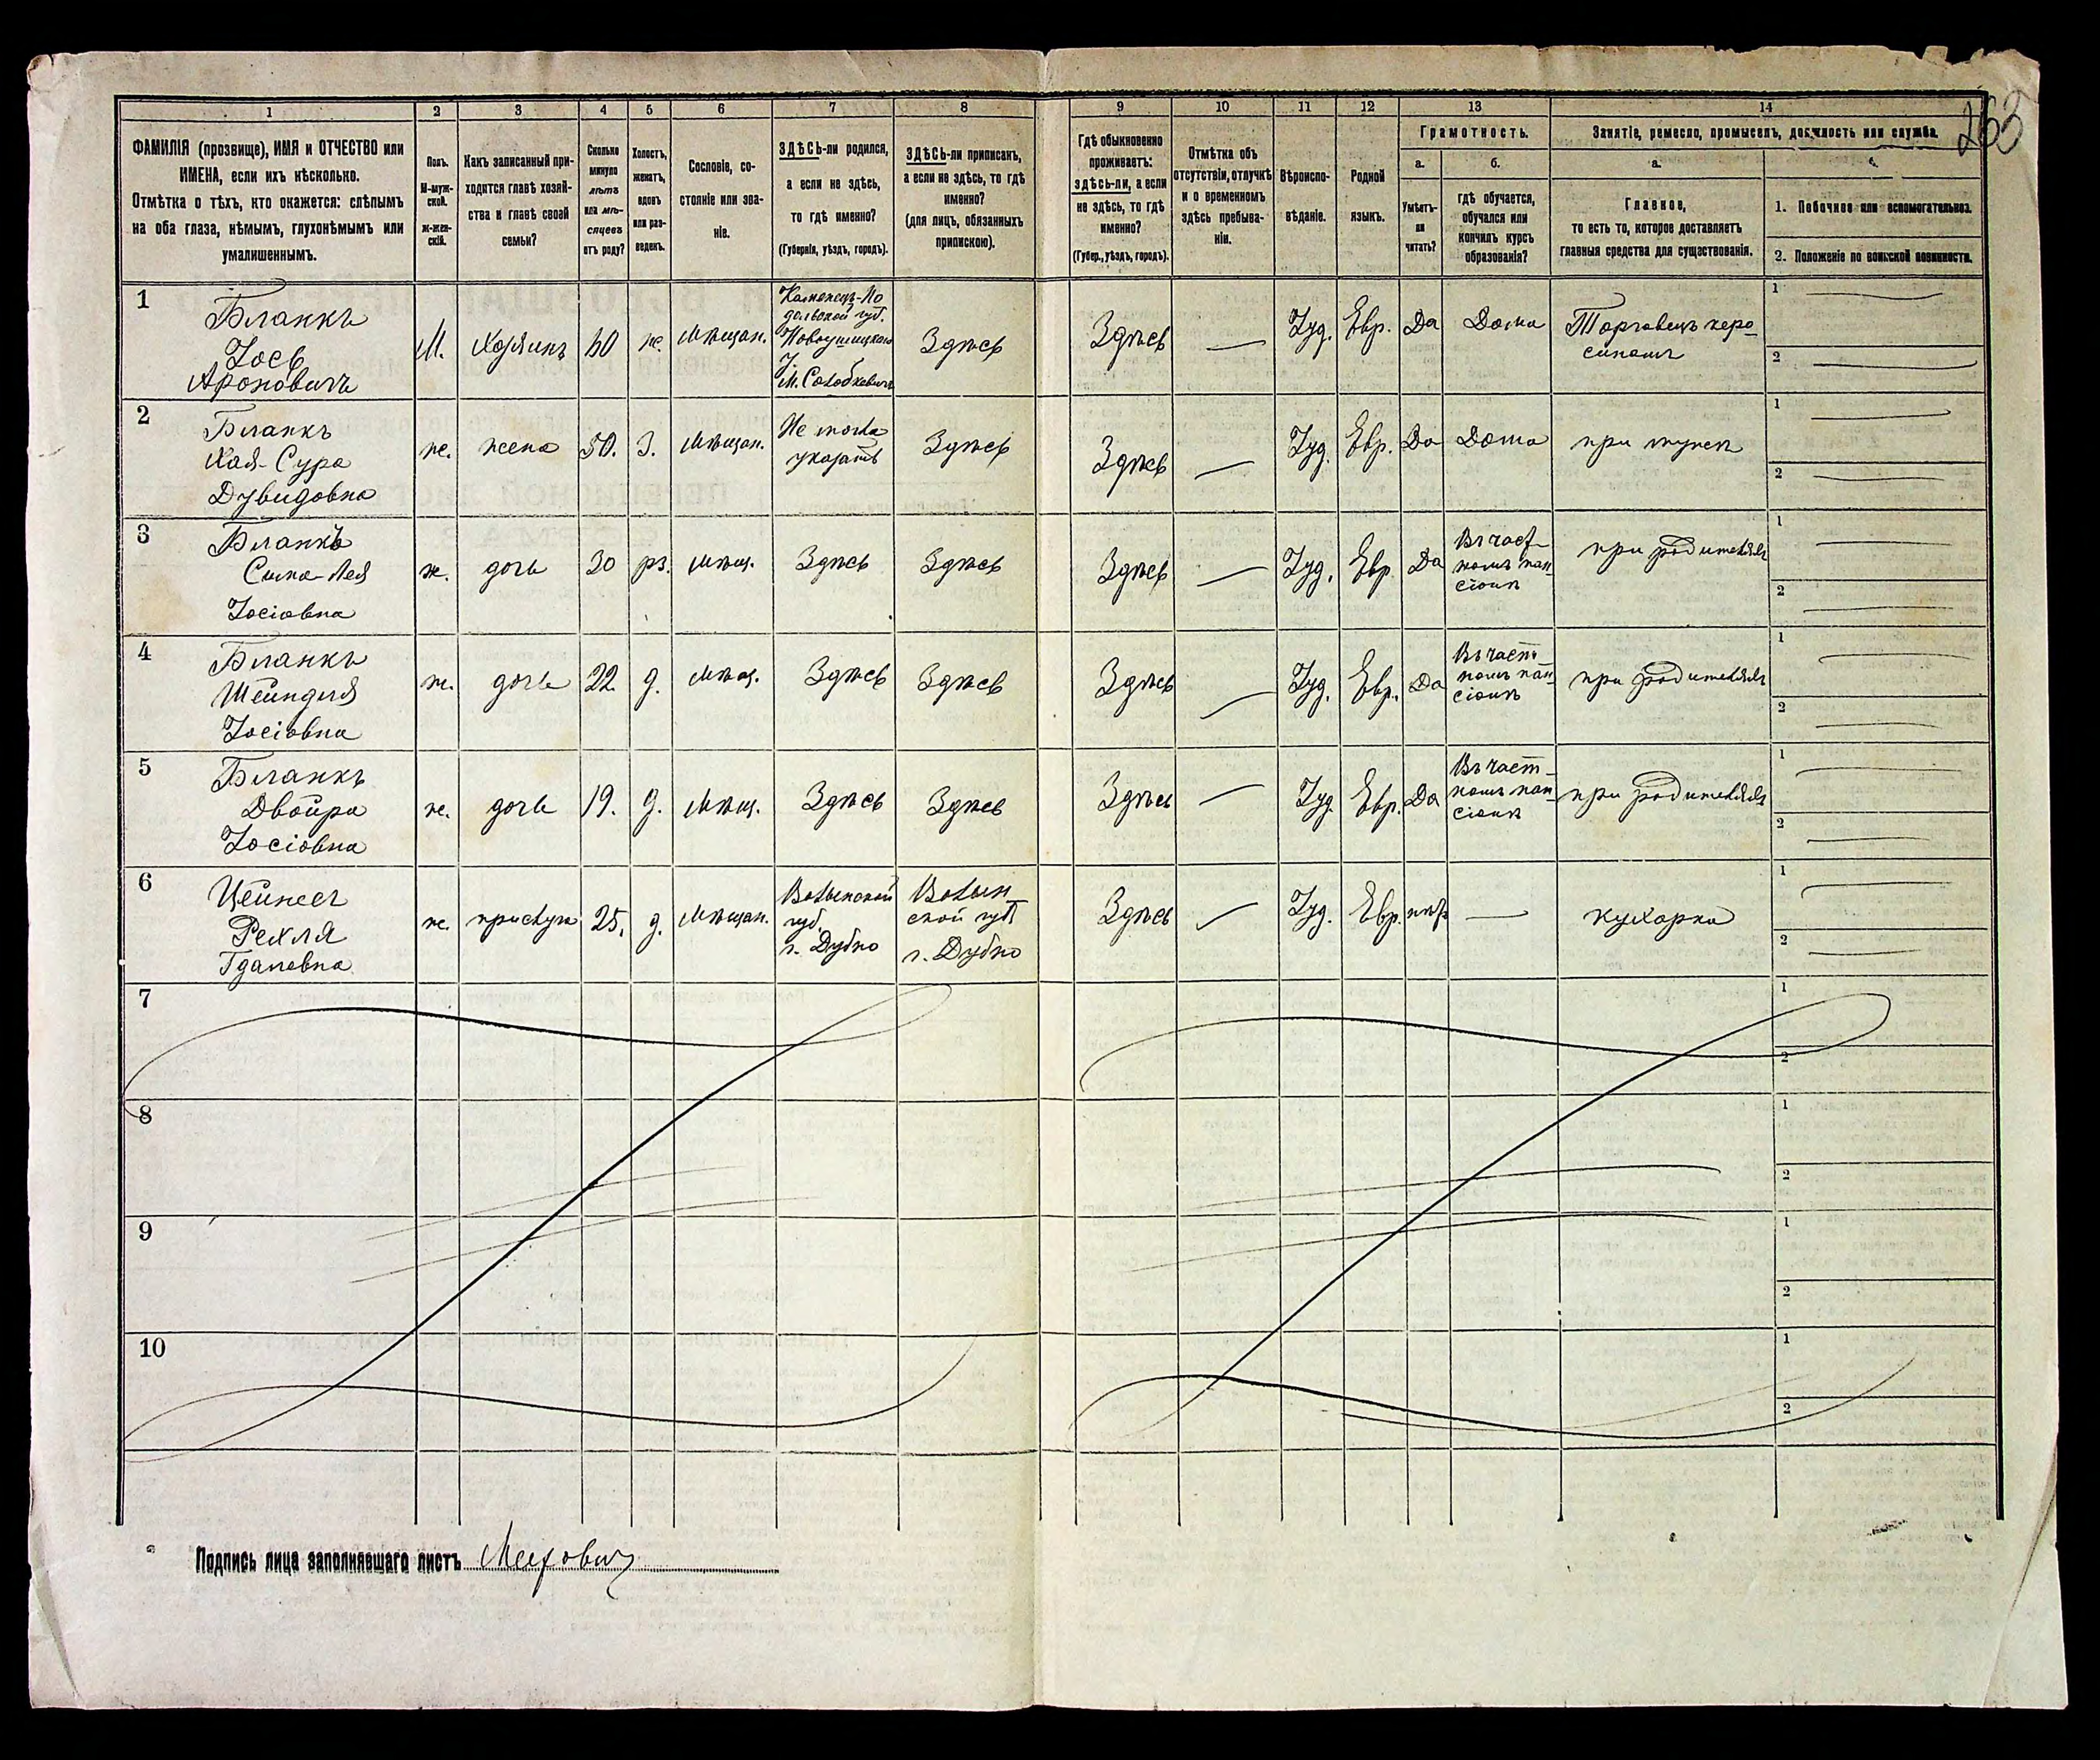 263
1 2 3 4 5 6 7 8 9 10 11 12 13 14
ФАМИЛІЯ (прозвище), ИМЯ и ОТЧЕСТВО или
ИМЕНА, если ихъ нѣсколько.
Отмѣтка о тѣхъ, кто окажется: слѣпымъ
на оба глаза, нѣмымъ, глухонѣмымъ или
умалишеннымъ.
Полъ.
М-муж-
ской.
ж-жен-
скій.
Какъ записанный при-
ходится главѣ хозяй-
ства и главѣ своей
семьи?
Сколько
минуло
лѣтъ
или мѣ-
сяцевъ
отъ роду?
Холостъ,
женатъ,
вдовъ
или раз-
веденъ.
Сословіе, со-
стояніе или зва-
ніе.
ЗДѢСЬ-ли родился,
а если не здѣсь,
то гдѣ именно?
(Губернія, уѣздъ, городъ).
ЗДѢСЬ-ли приписанъ,
а если не здѣсь, то гдѣ
именно?
(для лицъ, обязанныхъ
припискою).
Гдѣ обыкновенно
проживаетъ:
здѣсь-ли, а если
не здѣсь, то гдѣ
именно?
(Губер., уѣздъ, городъ).
Отмѣтка объ
отсутствіи, отлучкѣ
и о временномъ
здѣсь пребыва-
ніи.
Вѣроиспо-
вѣданіе.
Родной
языкъ.
Грамотность.
а.
Умѣетъ-
ли
читать?
б.
гдѣ обучается,
обучался или
кончилъ курсъ
образованія?
Занятіе, ремесло, промыселъ, должность или служба.
а.
Главное,
то есть то, которое доставляетъ
главныя средства для существованія.
б.
1. Побочное или вспомогательное.
2. Положеніе по воинской повинности.
1
Бланкъ
Іось
Ароновичъ
М.
Хозяинъ
60
ж.
Мѣщан.
Каменецъ-По
дольской губ.
Новоушицкаго
у.
М. Солобковичъ
Здѣсь
Здѣсь
—
Іуд.
Евр.
Да
Дома
Торговецъ керо-
синомъ
1
2
2
Бланкъ
Хая-Сура
Дувидовна
ж.
жена
50.
З.
Мѣщан.
Не могла
указать
Здѣсь
Здѣсь
—
Іуд.
Евр.
Да
Дома
при мужѣ
1
2
3
Бланкъ
Сима-Лея
Іосіовна
ж.
дочь
30
рз.
Мѣщ.
Здѣсь
Здѣсь
Здѣсь
—
Іуд.
Евр.
Да
Въ част-
номъ пан-
сіонѣ
при родителяхъ
1
2
4
Бланкъ
Шейндля
Іосіовна
ж.
дочь
22
д.
Мѣщ.
Здѣсь
Здѣсь
Здѣсь
—
Іуд.
Евр.
Да
Въ част-
номъ пан-
сіонѣ
при родителяхъ
1
2
5
Бланкъ
Двойра
Іосіовна
ж.
дочь
19.
д.
Мѣщ.
Здѣсь
Здѣсь
Здѣсь
—
Іуд.
Евр.
Да
Въ част-
номъ пан-
сіонѣ
при родителяхъ
1
2
6
Рехля
ж.
прислуга
25.
д.
Мѣщан.
Волынской
губ.
г. Дубно
Волын-
ской губ
г. Дубно
Здѣсь
—
Іуд.
Евр.
нѣтъ
—
кухарка
1
2
7
1
2
8
1
2
9
1
2
10
1
2
Подпись лица заполнявшаго листъ